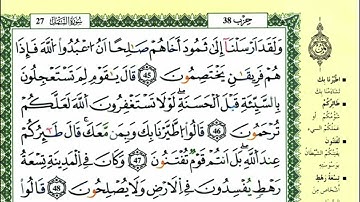 27 سُورَةُ النَّمْلِ
حِزْب 38
وَلَقَدْ أَرْسَلْنَا إِلَىٰ ثَمُودَ أَخَاهُمْ صَـٰلِحًا أَنِ اعْبُدُوا اللَّهَ فَإِذَا
هُمْ فَرِيقَـٰنِ يَخْتَصِمُونَ 45 قَالَ يَـٰقَوْمِ لِمَ تَسْتَعْجِلُونَ
بِالسَّيِّئَةِ قَبْلَ الْحَسَنَةِ لَوْلَا تَسْتَغْفِرُونَ اللَّهَ لَعَلَّكُمْ
تُرْحَمُونَ 46 قَالُوا اطَّيَّرْنَا بِكَ وَبِمَن مَّعَكَ قَالَ طَـٰٓئِرُكُمْ
عِندَ اللَّهِ بَلْ أَنتُمْ قَوْمٌ تُفْتَنُونَ 47 وَكَانَ فِي الْمَدِينَةِ تِسْعَةُ
رَهْطٍ يُفْسِدُونَ فِي الْأَرْضِ وَلَا يُصْلِحُونَ 48 قَالُوا
اطَّيَّرْنَا بِكَ
تَشَاءَمْنَا بِكَ
طَائِرُكُمْ
شُؤْمُكُمْ أو
عَمَلُكُمُ السيء
تُفْتَنُونَ
تِسْعَةُ رَهْطٍ